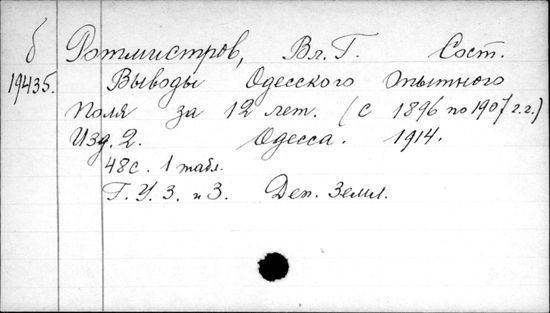 б Ротмистров, Вл. Г. Сост.
19435. Выводы Одесского Опытного
Поля за 12 лет. (с 1896 по 1907 г.г.)
Изд. 2. Одесса. 1914.
48 с. 1 табл.
Г. У. З. и З. Деп. Земл.